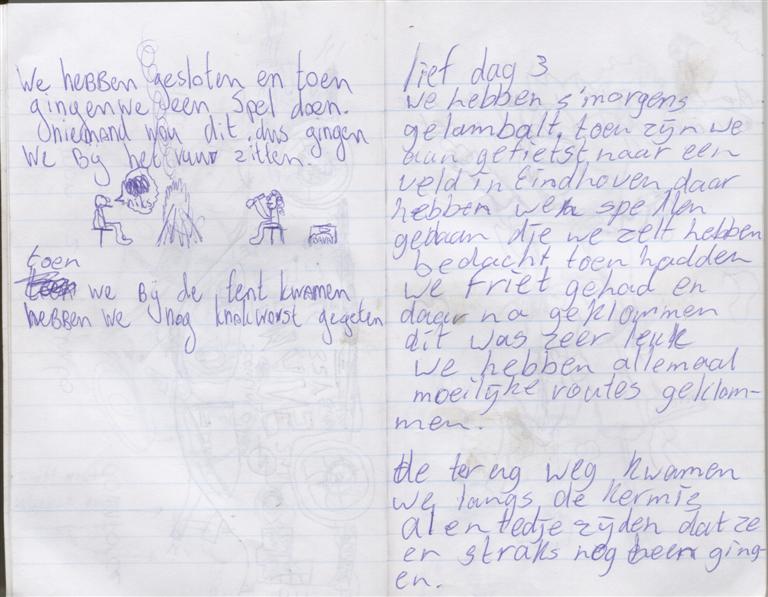 We hebben gesloten en toen
gingen we een spel doen.
niemand wou dit. dus gingen
we bij het vuur zitten.
niks
toen
we bij de tent kwamen
hebben we nog knakworst gegeten
lief dag 3
we hebben s'morgens
gelambalt. toen zijn we
aan gefietst naar een
veld in Eindhoven daar
hebben we spellen
gedaan die we zelf hebben
bedacht toen hadden
we friet gehad en
daar na geklommen
dit was zeer leuk
we hebben allemaal
moeilijke routes geklom-
men.
de terug weg kwamen
we langs de kermis
al en tedje zijden dat ze
er straks nog heen ging-
en.